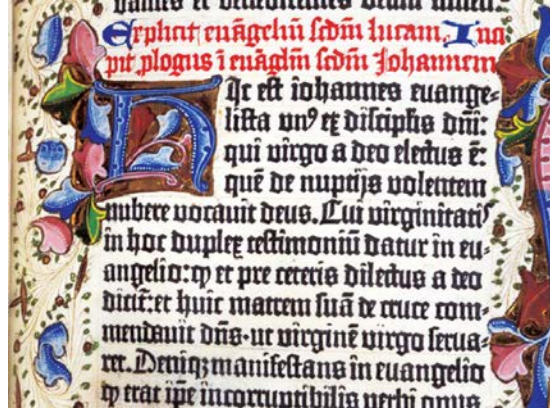 dantes et benedicentes deum amen.
Explicit euāgeliū scdm̄ lucam. Inci
pit ꝓlogus ī euāgl̄m scdm̄ Iohannem
Hic est iohannes euange-
lista vnꝰ ex discipl̄is dn̄i:
qui virgo a deo electus ē:
quē de nuptijs volentem
nubere vocauit deus. Cui virginitatꝭ
in hoc duplex testimoniū datur in eu-
angelio: ꝙ et pre ceteris dilectus a deo
dicit̄: et huic matrem suā de cruce com-
mendauit dn̄s. ut virginē virgo serua-
ret. Deniqꝫ manifestans in euangelio
ꝙ erat ip̄e incorruptibilis verbi opus